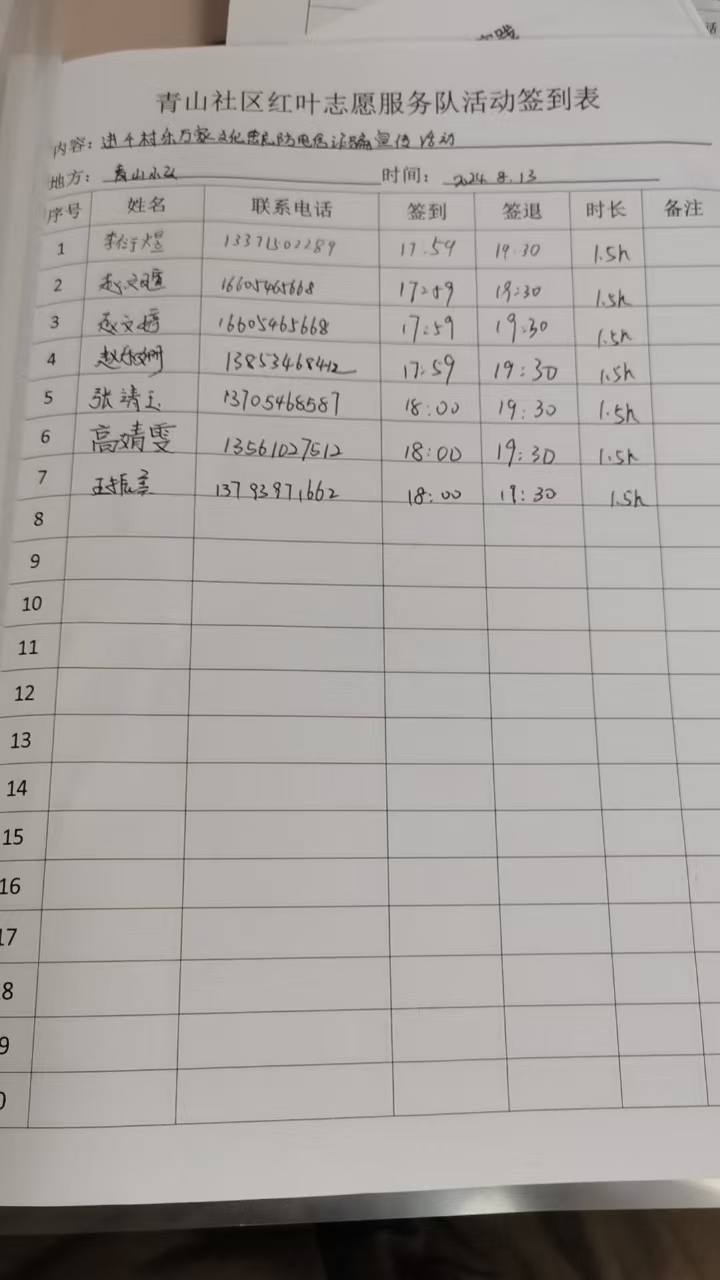 青山社区红叶志愿服务队活动签到表
内容: 进千村乐万家文化惠民防电信诈骗宣传活动
地方: 青山小区 时间: 2024.8.13
序号 姓名 联系电话 签到 签退 时长 备注
1 13371502289 17:59 19:30 1.5h
2 赵文瑄 16605465668 17:59 19:30 1.5h
3 赵文婷 16605465668 17:59 19:30 1.5h
4 13853468412 17:59 19:30 1.5h
5 张靖玉 13705468587 18:00 19:30 1.5h
6 高婧雯 13561027512 18:00 19:30 1.5h
7 王振 13793971662 18:00 19:30 1.5h
8
9
10
11
12
13
14
15
16
17
8
9
0